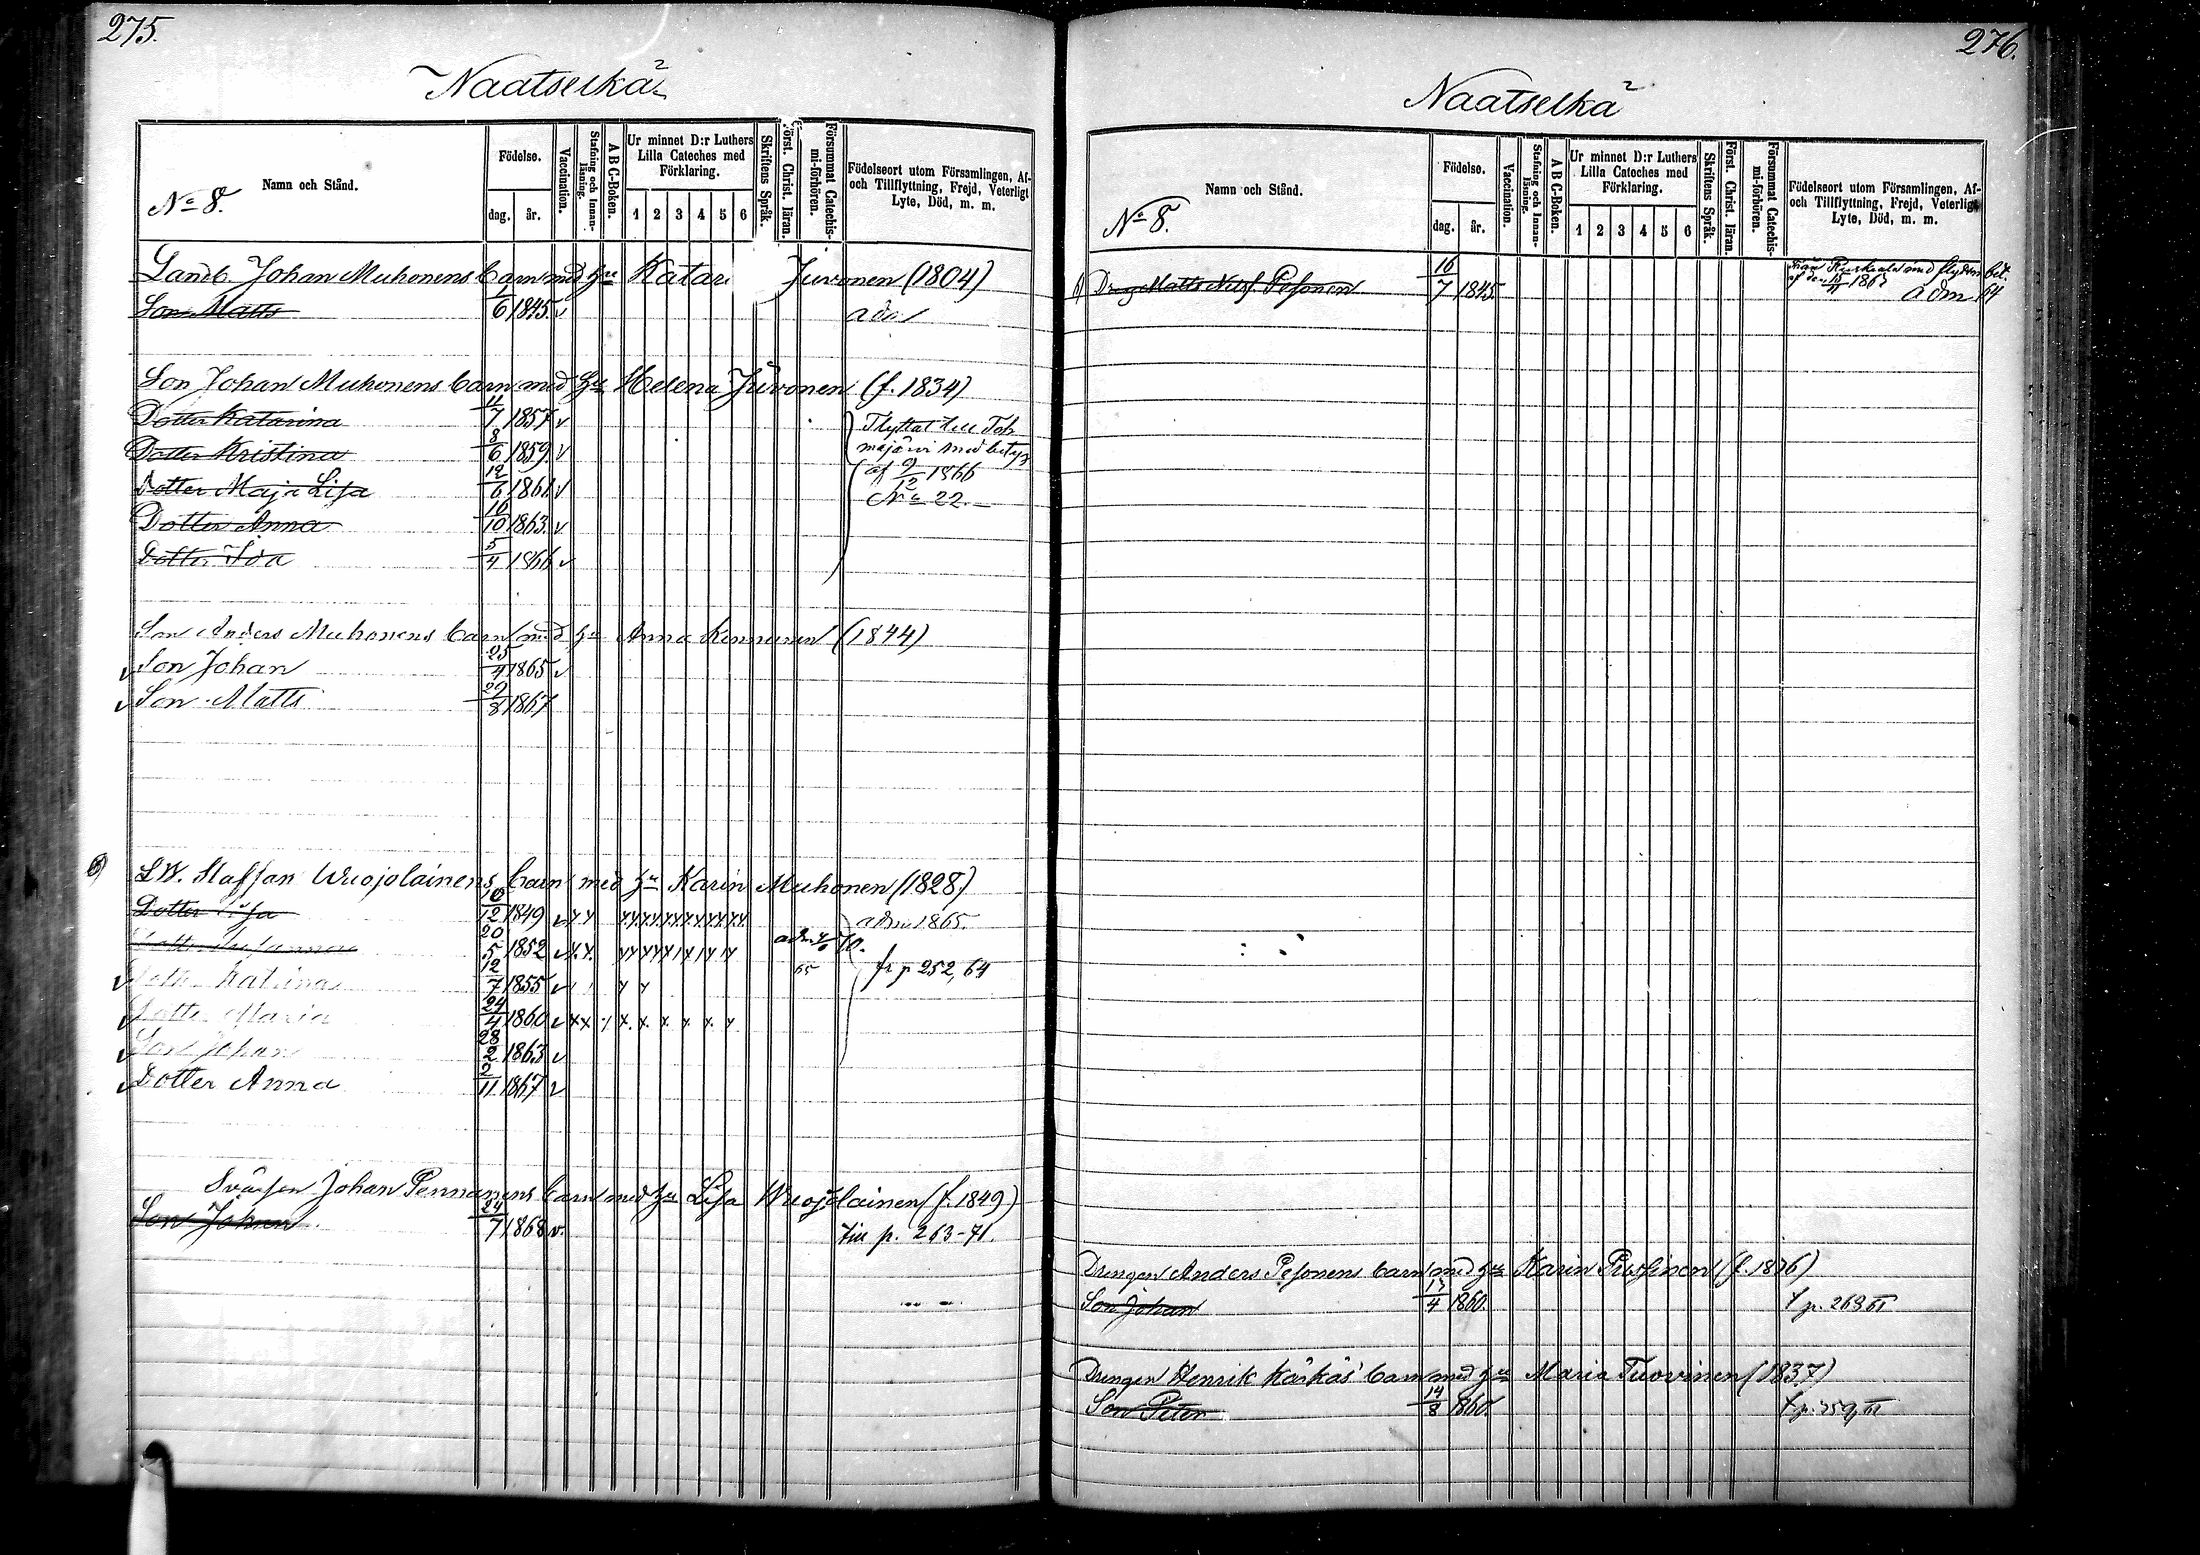 275.
Naatselkä
No 8.
Namn och Stånd.
Födelse.
dag.
år.
Vaccination.
Stafning och Innan-läsning.
A B C-Boken.
Ur minnet D:r Luthers
Lilla Cateches med
Förklaring.
1 2 3 4 5 6
Skriftens Språk.
Först. Christ. läran.
Försummat Catechis-
mi-förhören.
Födelseort utom Församlingen, Af-
och Tillflyttning, Frejd, Veterligt
Lyte, Död, m. m.
Landb. Johan Muhonens barn med hu Katar Juvonen (1804)
Son Matts 6 1845 v adm
Son Johan Muhonens barn med hu Helena Juvonen (f. 1834)
Dotter Katarina 11/7 1857 v Flyttat till Toh
Dotter Kristina 8/6 1859 v majärvi med betyg
Dotter Maja Lisa 12/6 1861 v af 9/12 1866
Dotter Anna 16/10 1863 v No 22.
Dotter Ida 5/4 1866 v
Son Anders Muhonens barn med hu Anna Kinnunen (1844)
v Son Johan 25/4 1865 v
v Son Matts 29/8 1867
6) LW. Staffan Wuojolainens barn med hu Karin Muhonen (1828)
Dotter Lisa 10/12 1849 v adm 1865.
Dotter Susanna 20/5 1852 v adm 70.
v Dotter Katrina 12/7 1855 v 65 fr p 252, 64
v Dotter Maria 24/4 1860 v
v Son Johan 28/2 1863 v
v Dotter Anna 2/11 1867 v
Svågren Johan Pennanens barn med hu Lisa Wuojolainen (f. 1849)
Son Johan 24/7 1868 v. till p. 263-71.
276.
Naatselkä
No 8.
Namn och Stånd.
Födelse.
dag.
år.
Vaccination.
Stafning och Innan-läsning.
A B C-Boken.
Ur minnet D:r Luthers
Lilla Cateches med
Förklaring.
1 2 3 4 5 6
Skriftens Språk.
Först. Christ. läran.
Försummat Catechis-
mi-förhören.
Födelseort utom Församlingen, Af-
och Tillflyttning, Frejd, Veterligt
Lyte, Död, m. m.
6) Dreng Matts Nilsf. Pesonen 16/7 1845 Från Ruskeala med flyttn bet.
af den 15/11 1863 adm 64
Drengen Anders Pesonens barn med hu Karin Pussinen (f. 1836)
Son Johan 13/4 1860. f p. 268 III
Drengen Henrik Kärkäs' barn med hu Maria Tuovinen (1837)
Son Peter 14/8 1860. f p. 359, III